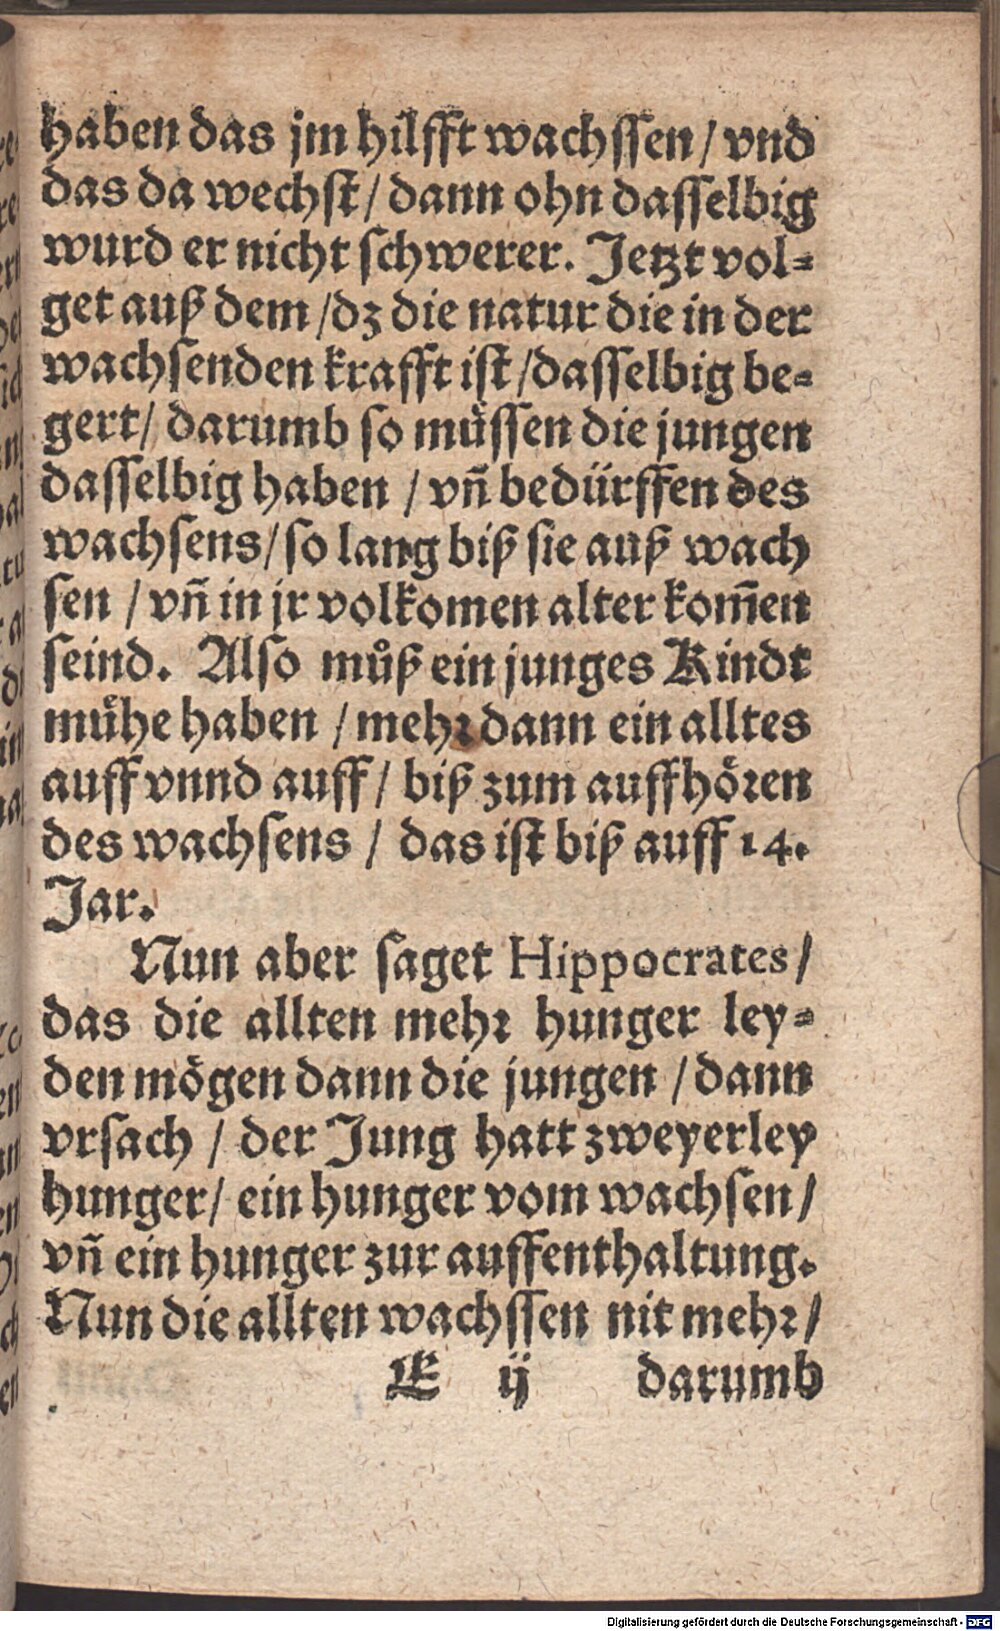 haben das jm hilfft wachssen / vnd
das da wechst / dann ohn dasselbig
wurd er nicht schwerer. Jetzt vol⸗
get auß dem / dz die natur die in der
wachsenden krafft ist / dasselbig be⸗
gert / darumb so muͤssen die jungen
dasselbig haben / vñ bedürffen des
wachsens / so lang biß sie auß wach
sen / vñ in jr volkomen alter kom̃en
seind. Also muͦß ein junges Kindt
muͤhe haben / mehr dann ein alltes
auff vnnd auff / biß zum auffhoͤren
des wachsens / das ist biß auff 14.
Jar.
Nun aber saget Hippocrates /
das die allten mehr hunger ley⸗
den moͤgen dann die jungen / dann
vrsach / der Jung hatt zweyerley
hunger / ein hunger vom wachsen /
vñ ein hunger zur auffenthaltung.
Nun die allten wachssen nit mehr /
E ij darumb
Digitalisierung gefördert durch die Deutsche Forschungsgemeinschaft - DFG